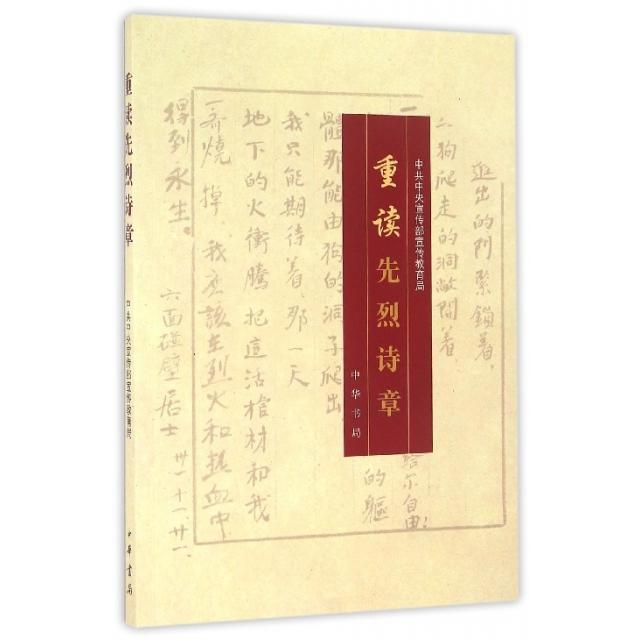 重读先烈诗章
中共中央宣传部宣传教育局
中华书局
中共中央宣传部宣传教育局
重读先烈诗章
中华书局
进出的门紧锁着，
狗爬走的洞敞开着
一
哈尔自由！
的躯
體那能由狗的洞子爬出
我只能期待着，那一天
地下的火衝騰，把這活棺材和我
一齊燒掉，我应該在烈火和热血中
得到永生。
六面碰壁居士
卅一·十一·廿一